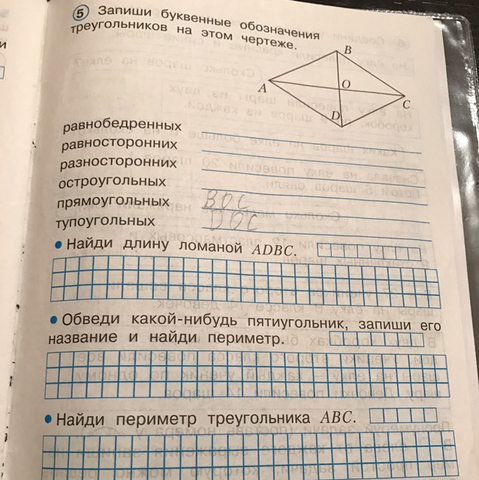 5 Запиши буквенные обозначения
треугольников на этом чертеже.
B
A
O
C
D
равнобедренных
равносторонних
разносторонних
остроугольных
прямоугольных ВОС
тупоугольных DОС
• Найди длину ломаной ADBC.
• Обведи какой-нибудь пятиугольник, запиши его
название и найди периметр.
• Найди периметр треугольника ABC.